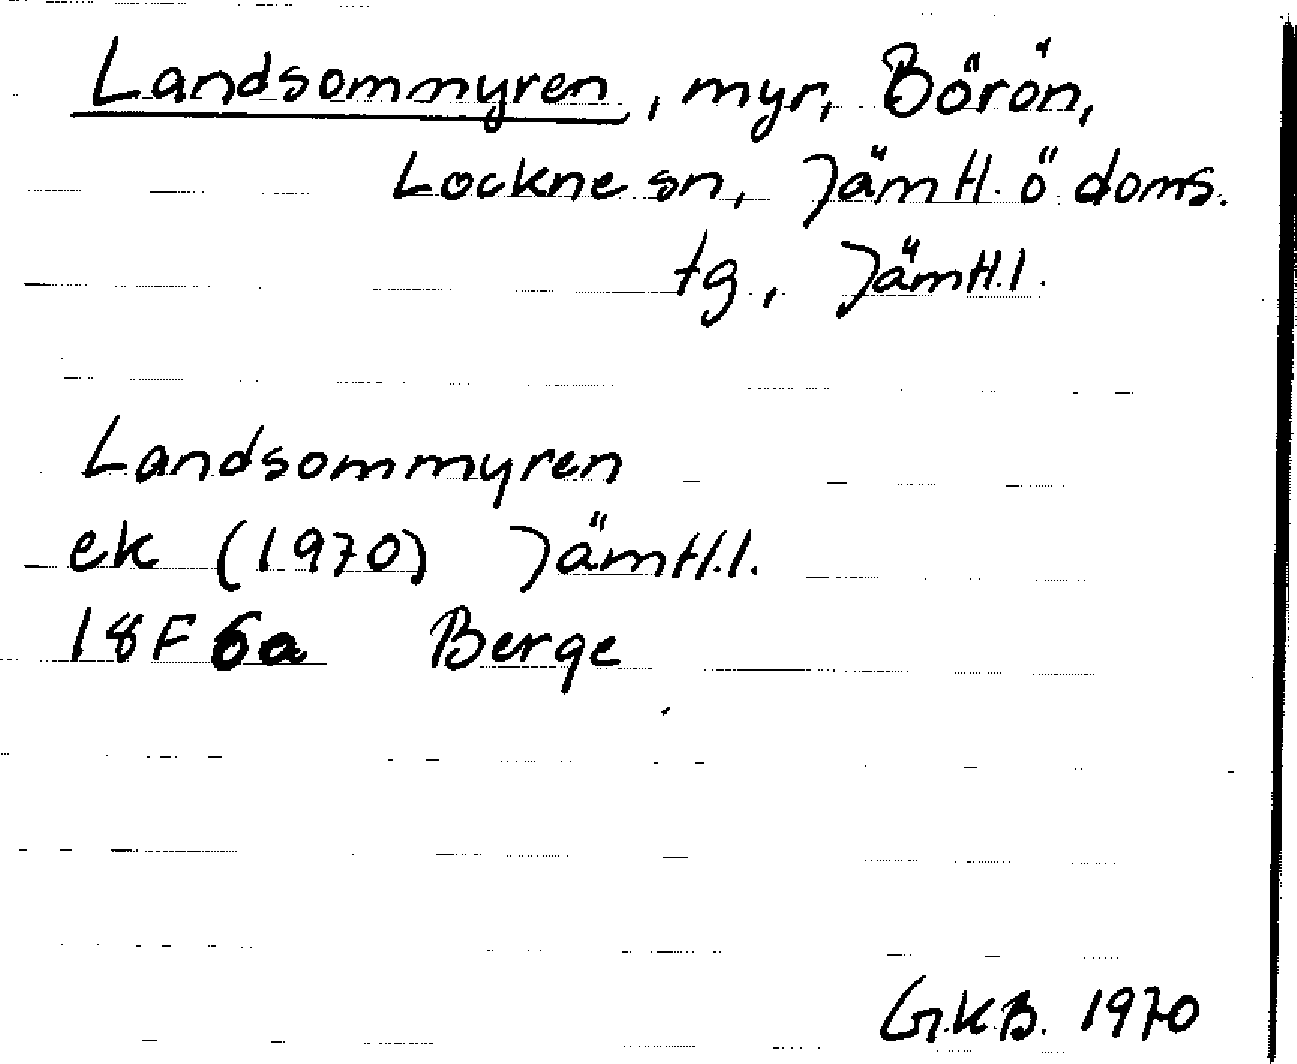 Landsommyren, myr, Börön,
Lockne sn, Jämtl. ö doms.
tg, Jämtl.l.
Landsommyren
ek (1970) Jämtl.l.
18F 6a Berge
G.K.B. 1970